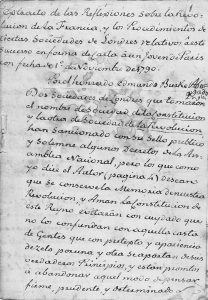 Extracto de las Reflexiones sobre la Revo-
lucion de la Francia, y los Procedimientos de
ciertas Sociedades de Londres relativos a este
suceso en forme de carta a un joven de Paris
con fecha de 1º de Noviembre de 1790.
Por el honrado Edmundo Burke
Dos Sociedades de Londres que tomaron
el nombre de Sociedad de la Constitucion
y la otra de Sociedad de la Revolucion
han Sancionado con su Sello publico
y Solemne algunos Decretos de la Asam-
blea Nacional, pero los que como
yo dice el Autor (pagina 4) desean
que se conserve la Memoria de nuestra
Revolucion, y Aman la Constitucion de
este Reyno evitarán con cuidado que
no los confundan con aquella casta
de Gentes que con pretexto y apariencia
de zelo para una y otra se apartan de sus
verdaderos Principios, y estan prontos
a abandonar aquel modo de pensar
firme, prudente y determinado